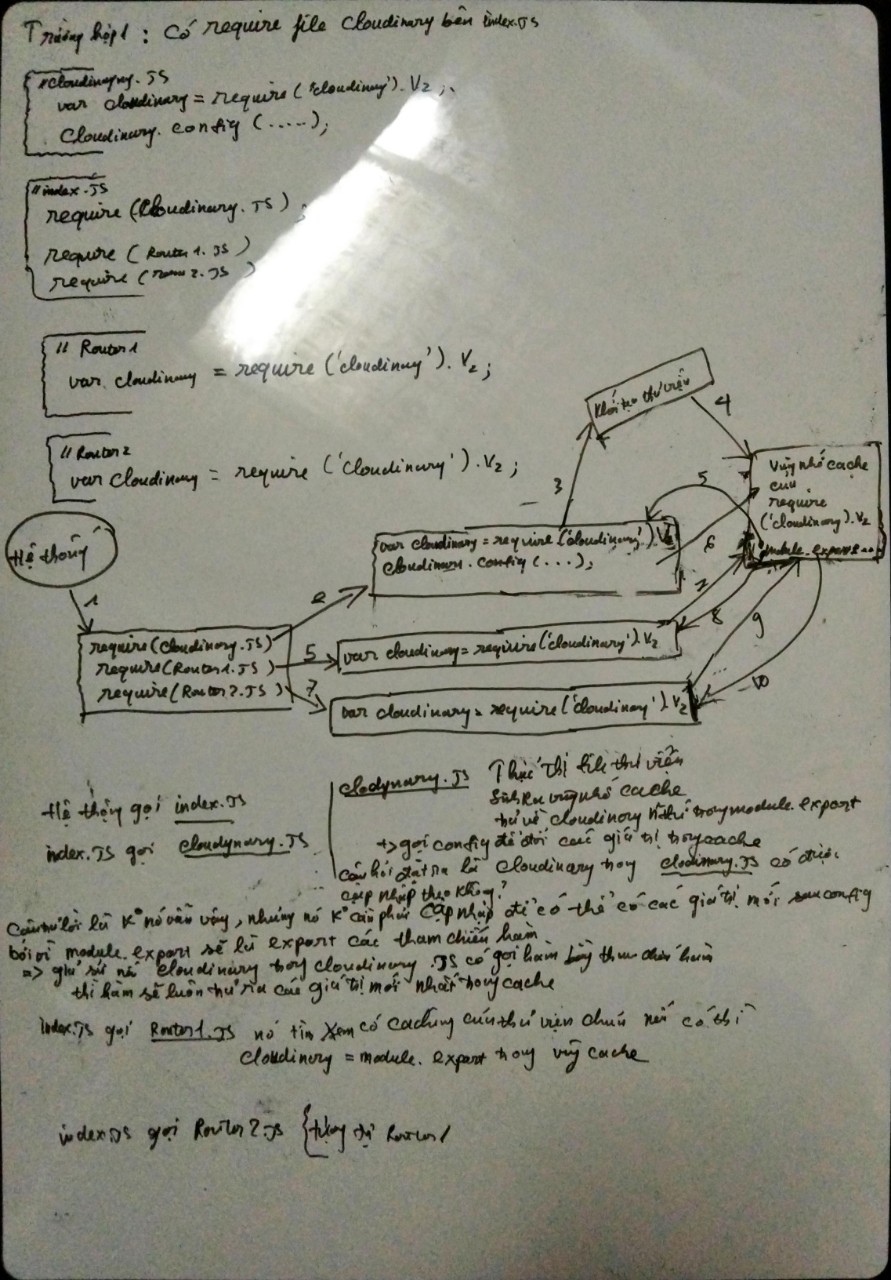 Trường hợp 1 : Có require file Cloudinary bên index.JS
//Cloudinary.JS
var cloudinary = require('cloudinary').V2;
Cloudinary.config (.....);
//index.JS
require(Cloudinary.JS);
require (Router1.JS)
require (Router2.JS)
// Router1
var cloudinary = require ('cloudinary').V2;
//Router2
var cloudinary = require ('cloudinary').V2;
Khởi tạo thư viện
4
Vùng nhớ cache
của
require
('cloudinary).V2
module.export = ..
3
5
6
Hệ thống
1
2
var cloudinary = require('cloudinary').V2
cloudinary.config (...);
7
8
9
10
require(Cloudinary.JS)
require(Router1.JS)
require(Router2.JS)
5
7
var cloudinary = require('cloudinary').V2
var cloudinary = require('cloudinary').V2
Hệ thống gọi index.JS
index.JS gọi cloudynary.JS
clodynary.JS Thực thi file thư viện
Sinh ra vùng nhớ cache
trả về cloudinary trong module.export
=> gọi config để đổi các giá trị trong cache
Câu hỏi đặt ra là cloudinary trong clodinary.JS có được
cập nhập theo không?
Câu trả lời là K° nó vẫn vậy, nhưng nó K° cần phải cập nhập để có thể có các giá trị mới sau config
bởi vì module.export sẽ là export các tham chiếu hàm
=> giả sử nếu cloudinary trong cloudinary.JS có gọi hàm bằng tham chiếu hàm
thì hàm sẽ luôn trả ra các giá trị mới nhất trong cache
index.JS gọi Router1.JS nó tìm xem có caching của thư viện chưa nếu có thì
cloudinary = module.export trong vùng cache
index.JS gọi Router2.JS { tương tự Router1